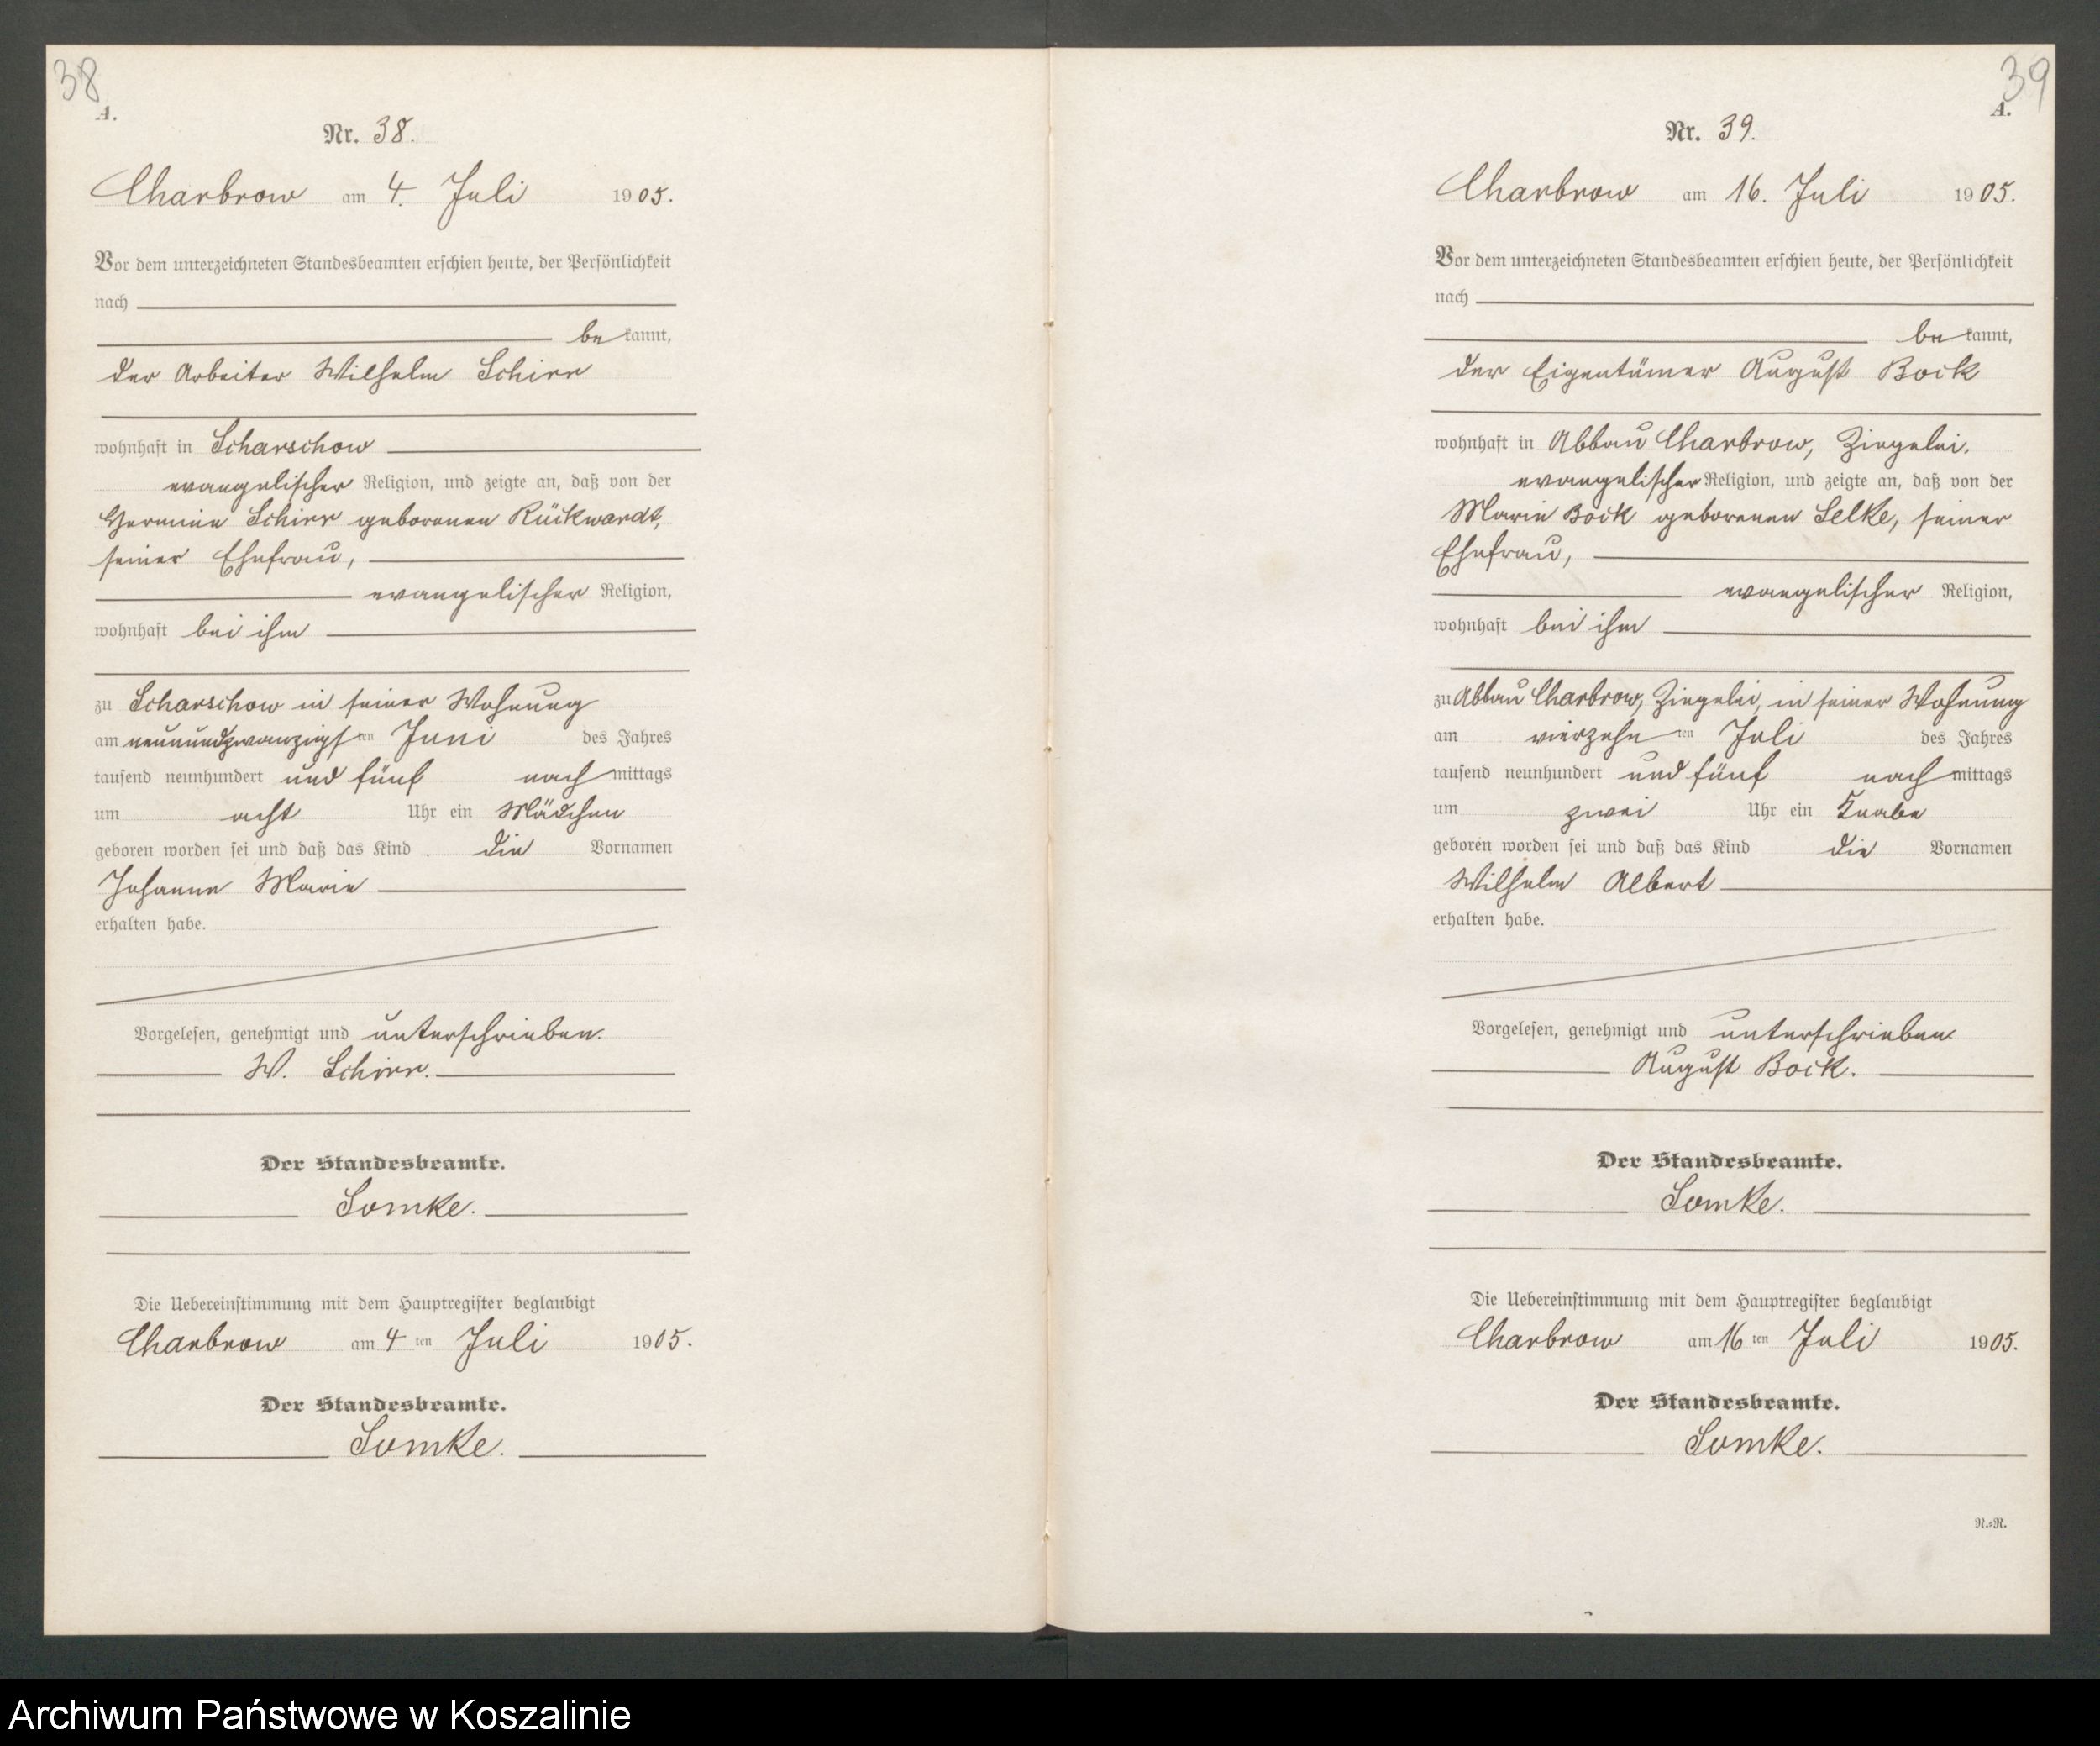 38
A.
Nr. 38.
Charbrow am 4. Juli 1905.
Vor dem unterzeichneten Standesbeamten erschien heute, der Persönlichkeit
nach
be kannt,
der Arbeiter Wilhelm Schirr
wohnhaft in Scharschow
evangelischer Religion, und zeigte an, daß von der
Hermine Schirr geborenen Rückwardt,
seiner Ehefrau,
evangelischer Religion,
wohnhaft bei ihm
zu Scharschow in seiner Wohnung
am neunundzwanzigsten Juni des Jahres
tausend neunhundert und fünf nach mittags
um acht Uhr ein Mädchen
geboren worden sei und daß das Kind die Vornamen
Johanne Marie
erhalten habe.
Vorgelesen, genehmigt und unterschrieben.
W. Schirr.
Der Standesbeamte.
Lomke.
Die Uebereinstimmung mit dem Hauptregister beglaubigt
Charbrow am 4 ten Juli 1905.
Der Standesbeamte.
Lomke.
39
A.
Nr. 39.
Charbrow am 16. Juli 1905.
Vor dem unterzeichneten Standesbeamten erschien heute, der Persönlichkeit
nach
be kannt,
der Eigentümer August Bock
wohnhaft in Abbau Charbrow, Ziegelei.
evangelischer Religion, und zeigte an, daß von der
Marie Bock geborenen Selke, seiner
Ehefrau,
evangelischer Religion,
wohnhaft bei ihm
zu Abbau Charbrow, Ziegelei, in seiner Wohnung
am vierzehn ten Juli des Jahres
tausend neunhundert und fünf nach mittags
um zwei Uhr ein Knabe
geboren worden sei und daß das Kind die Vornamen
Wilhelm Albert
erhalten habe.
Vorgelesen, genehmigt und unterschrieben
August Bock.
Der Standesbeamte.
Lomke.
Die Uebereinstimmung mit dem Hauptregister beglaubigt
Charbrow am 16 ten Juli 1905.
Der Standesbeamte.
Lomke.
N.=R.
Archiwum Państwowe w Koszalinie